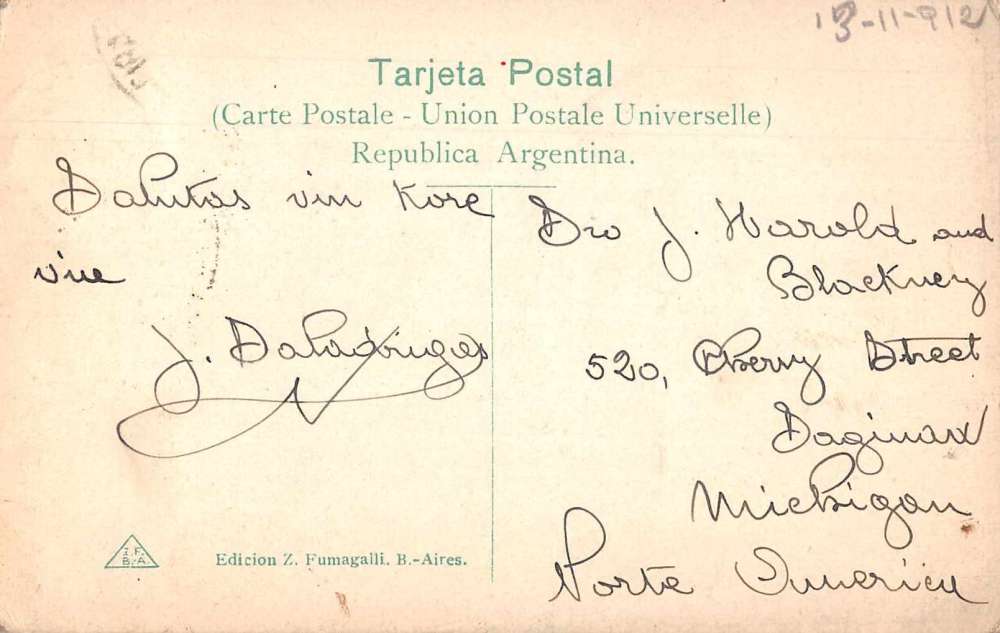 13-11-912
Tarjeta Postal
(Carte Postale - Union Postale Universelle)
Republica Argentina.
Salutas vin Kore
vue
J.
Sro J. Harold and
Blackney
520, Cherry Street
Saginaw
Michigan
Norte America
Z.F.
B.A.
Edicion Z. Fumagalli. B.-Aires.